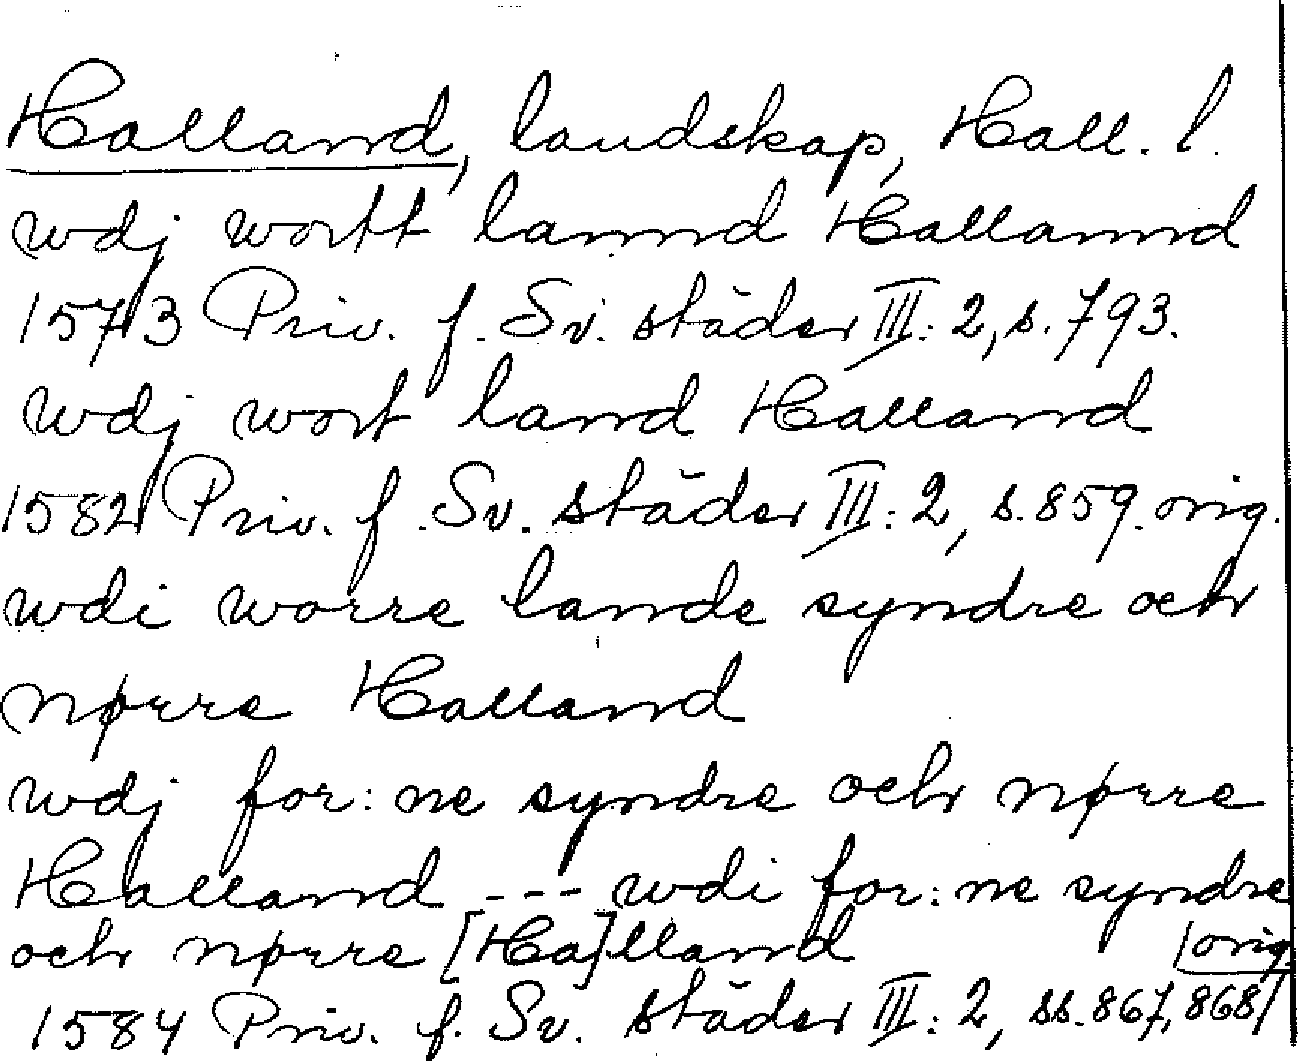 Halland, landskap, Hall. l.
wdj wortt lannd Hallannd
1573 Priv. f. Sv. städer III: 2, s. 793.
wdj wort land Halland
1582 Priv. f. Sv. städer III: 2, s. 859. orig.
wdi worre lande syndre och
nørre Halland
wdj for: ne syndre och nørre
Halland --- wdi for: ne syndre
och nørre [Ha]lland
1584 Priv. f. Sv. städer III: 2, ss. 867, 868/
/orig.